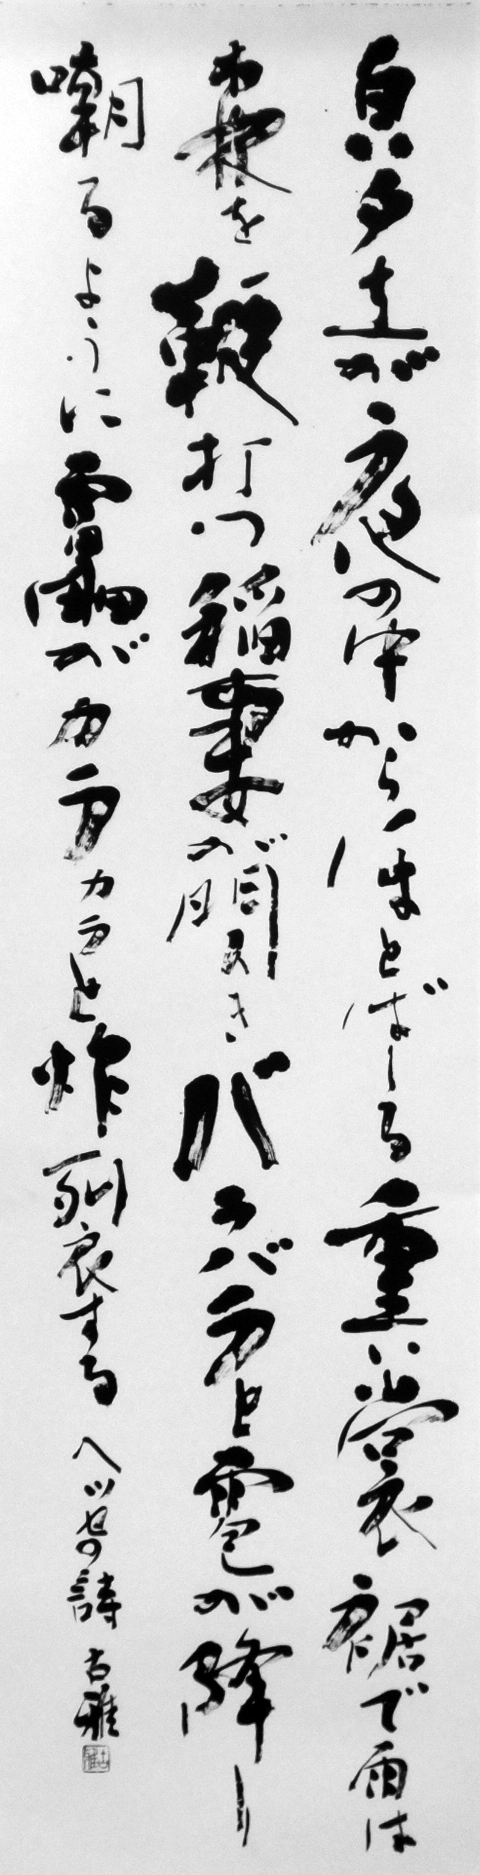 白い夕立が夜の中からほとばしる重い裳裾で雨は
を鞭打つ稲妻が閃きバラバラと雹が降り
嘲るように雷がカラカラと炸裂する ヘッセの詩 古雅